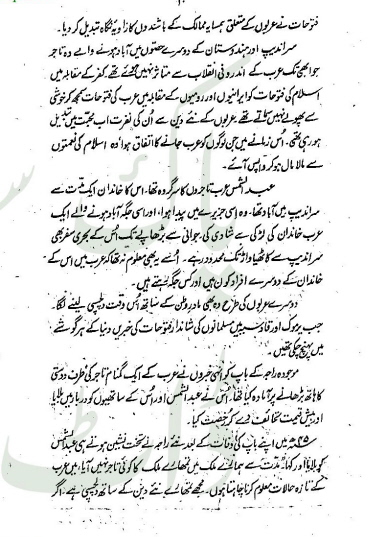 فتوحات نے عربوں کے متعلق ہمسایہ ممالک کے باشندوں کا زاویۂ نگاہ تبدیل کر دیا۔
سراندیپ اور ہندوستان کے دوسرے حصوں میں آباد ہونے والے وہ تاجر
جو ابھی تک عرب کے اندرونی انقلاب سے متاثر نہیں ہوئے تھے کفر کے مقابلہ میں
اسلام کی فتوحات کو ایرانیوں اور رومیوں کے مقابلہ میں عرب کی فتوحات سمجھ کر خوشی
سے پھولے نہیں سماتے تھے عربوں کے نئے دین سے اُن کی نفرت اب محبت میں تبدیل
ہو رہی تھی۔ اُس زمانے میں جن لوگوں کو عرب جانے کا اتفاق ہوا وہ اسلام کی نعمتوں
سے مالا مال ہو کر واپس آئے۔
عبدالشمس عرب تاجروں کا سرگروہ تھا۔ اس کا خاندان ایک مدت سے
سراندیپ میں آباد تھا۔ وہ اسی جزیرے میں پیدا ہوا، اور اسی جگہ آباد ہونے والے ایک
عرب خاندان کی لڑکی سے شادی کی۔ جوانی سے بڑھاپے تک اُس کے بحری سفر بھی
سراندیپ سے کاٹھیاواڑ تک محدود رہے۔ اُسے یہ بھی معلوم نہ تھا کہ عرب میں اس کے
خاندان کے دوسرے افراد کون ہیں اور کس جگہ بستے ہیں۔
دوسرے عربوں کی طرح وہ بھی مادرِ وطن کے ساتھ اُس وقت دلچسپی لینے لگا۔
جب یرموک اور قادسیہ میں مسلمانوں کی شاندار فتوحات کی خبریں دنیا کے ہر گوشے
میں پہنچ چکی تھیں۔
موجودہ راجہ کے باپ کو انہی خبروں نے عرب کے ایک گمنام تاجر کی طرف دوستی
کا ہاتھ بڑھانے پر آمادہ کیا تھا۔ اُس نے عبدالشمس اور اُس کے ساتھیوں کو دربار میں بلایا
اور بیش قیمت تحائف دے کر رخصت کیا۔
میں اپنے باپ کی وفات کے بعد نئے راجہ نے تخت نشین ہوتے ہی عبدالشمس
کو بلایا اور کہا۔ مدت سے ہمارے ملک میں تمہارے ملک کا کوئی تاجر نہیں آیا۔ میں عرب
کے تازہ حالات معلوم کرنا چاہتا ہوں۔ مجھے تمہارے نئے دین کے ساتھ دلچسپی ہے۔ اگر